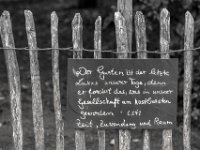 "Der Garten ist der letzte
Luxus unserer Tage, denn
er fordert das, was in unserer
Gesellschaft am kostbarsten
geworden ist:
Zeit, Zuwendung und Raum